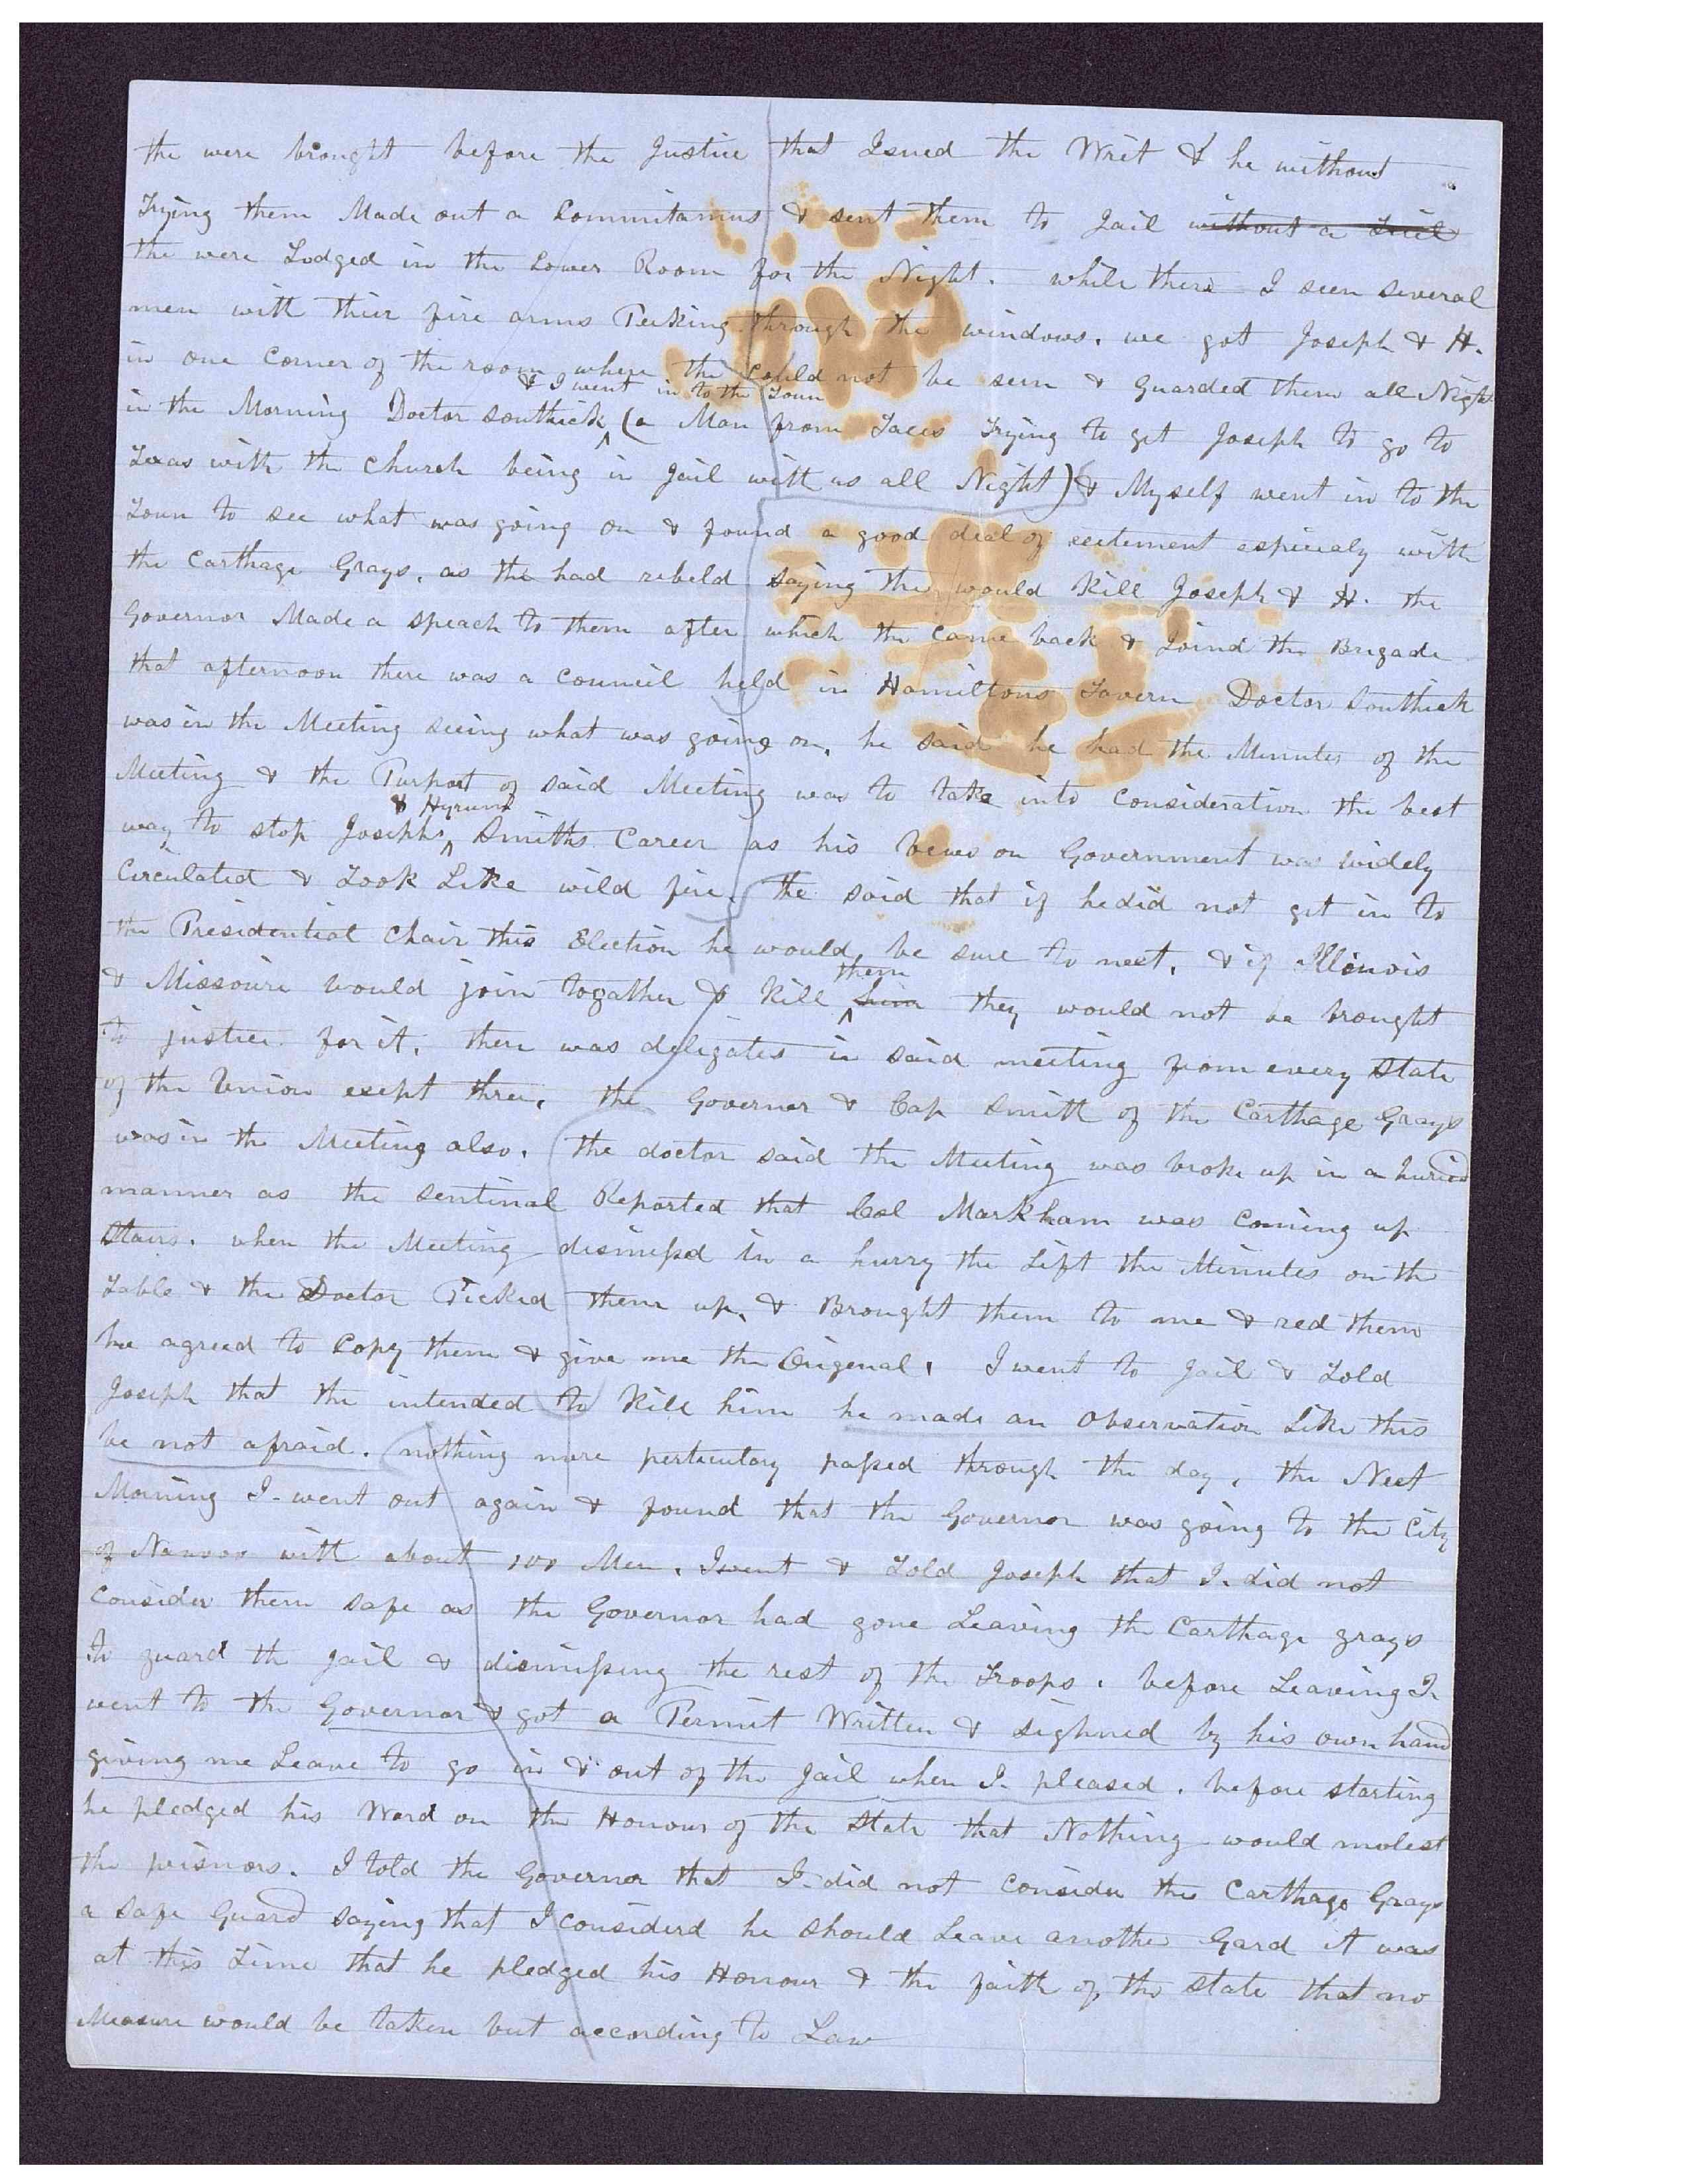 the were brought before the Justice that Isued the Writ & he without
Trying them Made out a Committamus & sent them to Jail without a Triel
the were Lodged in the Lower Room for the Night. while there I seen several
men with thier fire arms Peeking through the windows. we got Joseph & H.
in one Corner of the room where the Could not be seen & guarded them all Night
& I went in to the Toun
in the Morning Doctor Southick (a Man from Taces Trying to get Joseph to go to
Texas with the Church being in Jail with us all Night) & Myself went in to the
Toun to see what was going on & found a good deal of exitement especialy with
the Carthage Grays. as the had rebeld saying the would Kill Joseph & H. the
Governor Made a speach to them after which the came back & Joind the Brigade
that afternoon there was a Council held in Hamiltons Tavern Doctor Southick
was in the Meeting seeing what was going on. he said he had the Minutes of the
Meeting & the Purport of said Meeting was to take into Consideration the best
& Hyrums
way to stop Josephs Smiths Career as his views on Government was widely
Circulated & Took Like wild fire. the said that if he did not get in to
the Presidential Chair this Election he would be sure to next. & if Illinois
them
& Missouri would join together & Kill him they would not be brought
to justice for it. there was deligates in said meeting from every State
of the Union exept three. the Governor & Cap Smith of the Carthage Grays
was in the Meeting also. the doctor said the Meeting was broke up in a huried
manner as the sentinal Reported that Col Markham was Coming up
Stairs. when the Meeting dismissd in a hurry the Left the Minutes on the
Table & the Doctor Picked them up. & Brought them to me & red them
he agreed to Copy them & give me the Origenal. I went to Jail & Told
Joseph that the intended to Kill him he made an Observation Like this
be not afraid. nothing more perticulary passed through the day. the Next
Morning I went out again & found that the Governor was going to the City
of Nauvoo with about 100 Men. I went & Told Joseph that I did not
Consider them safe as the Governor had gone Leaving the Carthage grays
to guard the Jail & dismissing the rest of the Troops. before Leaving I
went to the Governor & got a Permit Written & sighned by his own hand
giving me Leave to go in & out of the Jail when I pleased. before starting
he pledged his Word on the Honour of the State that Nothing would molest
the prisnors. I told the Governor that I did not Consider the Carthage Grays
a Safe Guard saying that I considerd he should Leave another Gard it was
at this Time that he pledged his Honour & the faith of the State that no
Measure would be taken but according to Law